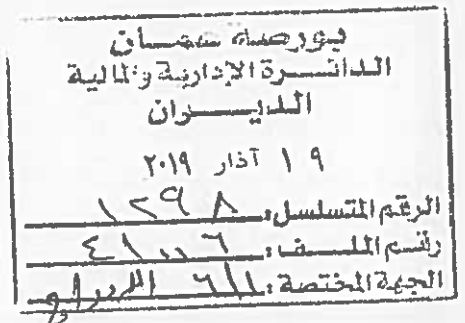 بورصة عمان
الدائرة الإدارية والمالية
الديوان
١٩ آذار ٢٠١٩
الرقم المتسلسل: ١٢٩٨
رقم الملف: ٤١٠٠٦
الجهة المختصة: